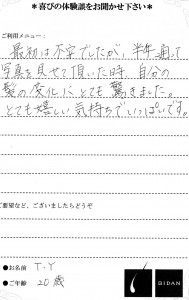 ＊喜びの体験談をお聞かせ下さい＊
ご利用メニュー：
最初は不安でしたが、半年通って
写真を見せて頂いた時、自分の
髪の変化にとても驚きました。
とても嬉しい気持ちでいっぱいです。
ご要望など、ございましたらどうぞ
●お名前 T.Y
●ご年齢 20歳
BIDAN